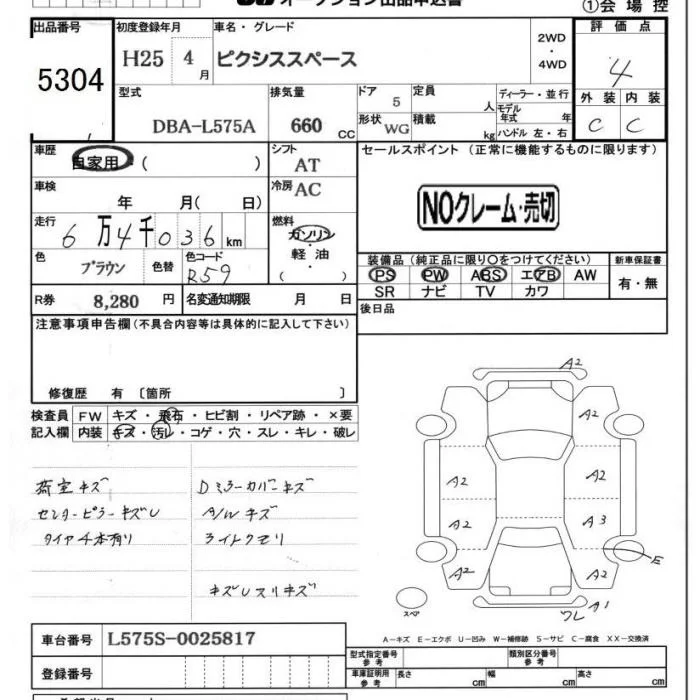 オークション出品申込書
①会場控
出品番号 初度登録年月 車名・グレード 2WD・4WD 評価点
5304 H25 4月 ピクシススペース 4
型式 排気量 ドア 5 定員 人 ディーラー・並行 外装 内装
DBA-L575A 660 CC 形状 WG 積載 kg モデル年式 年 ハンドル 左・右 C C
車歴 自家用・( ) シフト AT セールスポイント (正常に機能するものに限ります)
車検 年 月( 日) 冷房 AC
NOクレーム・売切
走行 6万4千036km 燃料 ガソリン・軽油・( )
色 ブラウン 色替 色コード R59
装備品(純正品に限り○をつけてください) 新車保証書
PS PW ABS エアB AW 有・無
SR ナビ TV カワ
R券 8,280 円 名変通知期限 月 日 後日品
注意事項申告欄(不具合内容等は具体的に記入して下さい)
修復歴 有 〔箇所 〕
検査員 FW キズ・飛石・ヒビ割・リペア跡・×要
記入欄 内装 キズ・汚レ・コゲ・穴・スレ・キレ・破レ
荷室キズ Dミラーカバーキズ
センターピラーキズU A/Wキズ
タイヤ4本有り ライトクモリ
キズU スリキズ
A2
A2
A2 A2
A2 A3
A2 A2 E
スペア ワレ A1
A-キズ E-エクボ U-凹み W-補修跡 S-サビ C-腐食 XX-交換済
車台番号 L575S-0025817
型式指定番号 参考 類別区分番号 参考
登録番号
車庫証明用 参考 長さ cm 幅 cm 高さ cm